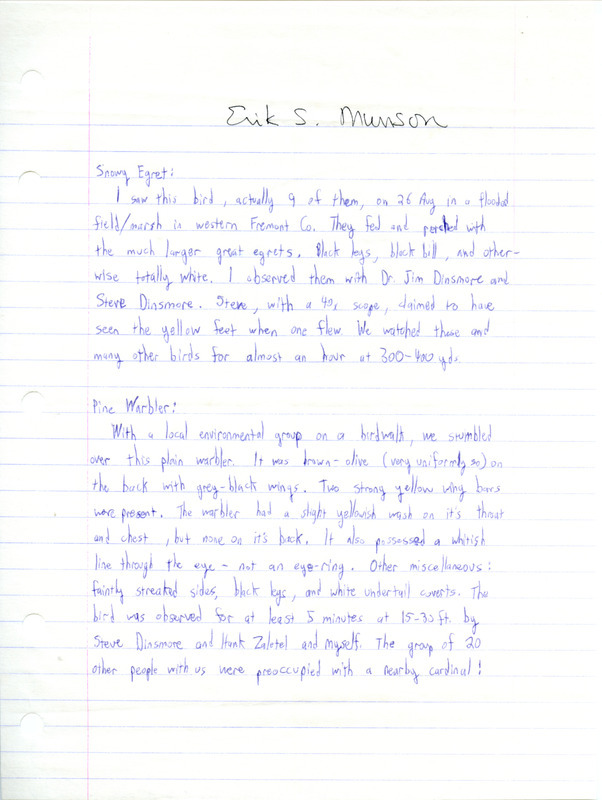 Erik S. Munson
Snowy Egret:
I saw this bird, actually 9 of them, on 26 Aug in a flooded
field/marsh in western Fremont Co. They fed and perched with
the much larger great egrets. Black legs, black bill, and other-
wise totally white. I observed them with Dr. Jim Dinsmore and
Steve Dinsmore. Steve, with a 40x scope, claimed to have
seen the yellow feet when one flew. We watched these and
many other birds for almost an hour at 300-400 yds.
Pine Warbler:
With a local environmental group on a birdwalk, we stumbled
over this plain warbler. It was brown-olive (very uniformly so) on
the back with grey-black wings. Two strong yellow wing bars
were present. The warbler had a slight yellowish wash on it's throat
and chest, but none on it's back. It also possessed a whitish
line through the eye - not an eye-ring. Other miscellaneous:
faintly streaked sides, black legs, and white undertail coverts. The
bird was observed for at least 5 minutes at 15-30 ft. by
Steve Dinsmore and Hank Zaletel and myself. The group of 20
other people with us were preoccupied with a nearby cardinal!